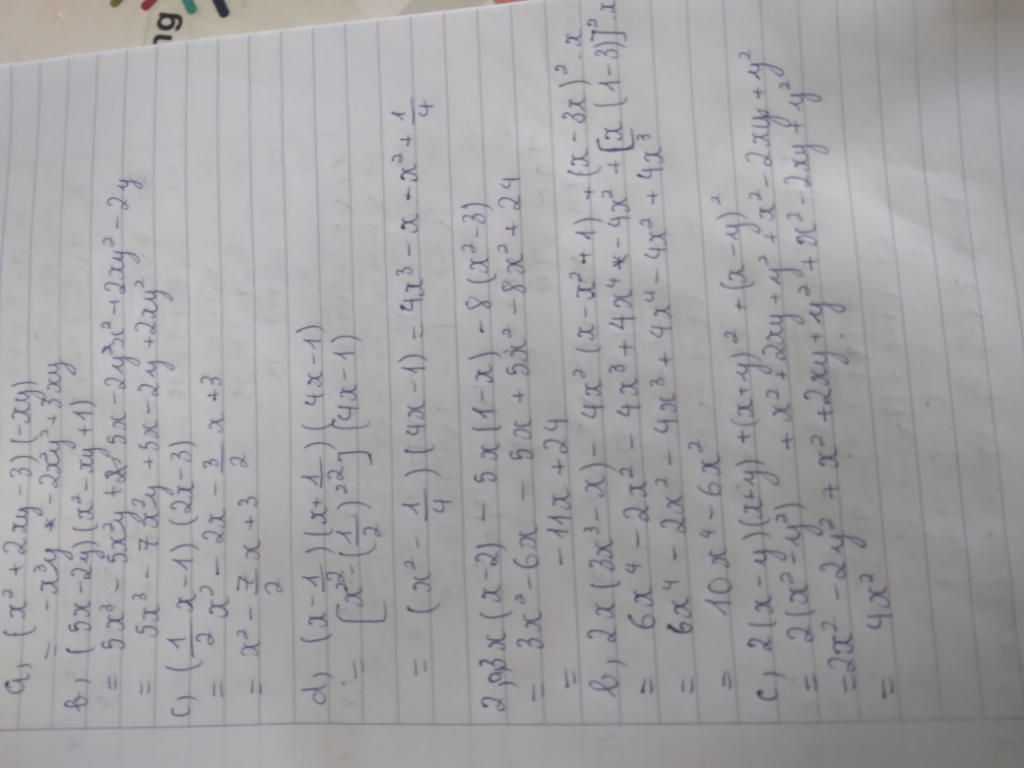 ng
a, (x² + 2xy - 3)(-xy)
= -x³y - 2xy + 3xy
b, (5x - 2y)(x² - xy + 1)
= 5x³ - 5x²y + 5x - 2y x² + 2xy² - 2y
= 5x³ - 7x²y + 5x - 2y + 2xy²
c, (1/2 x - 1)(2x - 3)
= x² - 2x - 3/2 x + 3
= x² - 7/2 x + 3
d, (x - 1/2)(x + 1/2)(4x - 1)
= [x² - (1/2)²](4x - 1)
= (x² - 1/4)(4x - 1) = 4x³ - x - x² + 1/4
2, a, 3x(x - 2) - 5x(1 - x) - 8(x² - 3)
= 3x² - 6x - 5x + 5x² - 8x² + 24
= -11x + 24
b, 2x(3x³ - x) - 4x²(x - x² + 1) + (x - 3x)² . x
= 6x⁴ - 2x² - 4x³ + 4x⁴ - 4x² + [x(1 - 3)]² x
= 6x⁴ - 2x² - 4x³ + 4x⁴ - 4x² + 4x³
= 10x⁴ - 6x²
c, 2(x - y)(x + y) + (x + y)² + (x - y)²
= 2(x² - y²) + x² + 2xy + y² + x² - 2xy + y²
= 2x² - 2y² + x² + 2xy + y² + x² - 2xy + y²
= 4x²